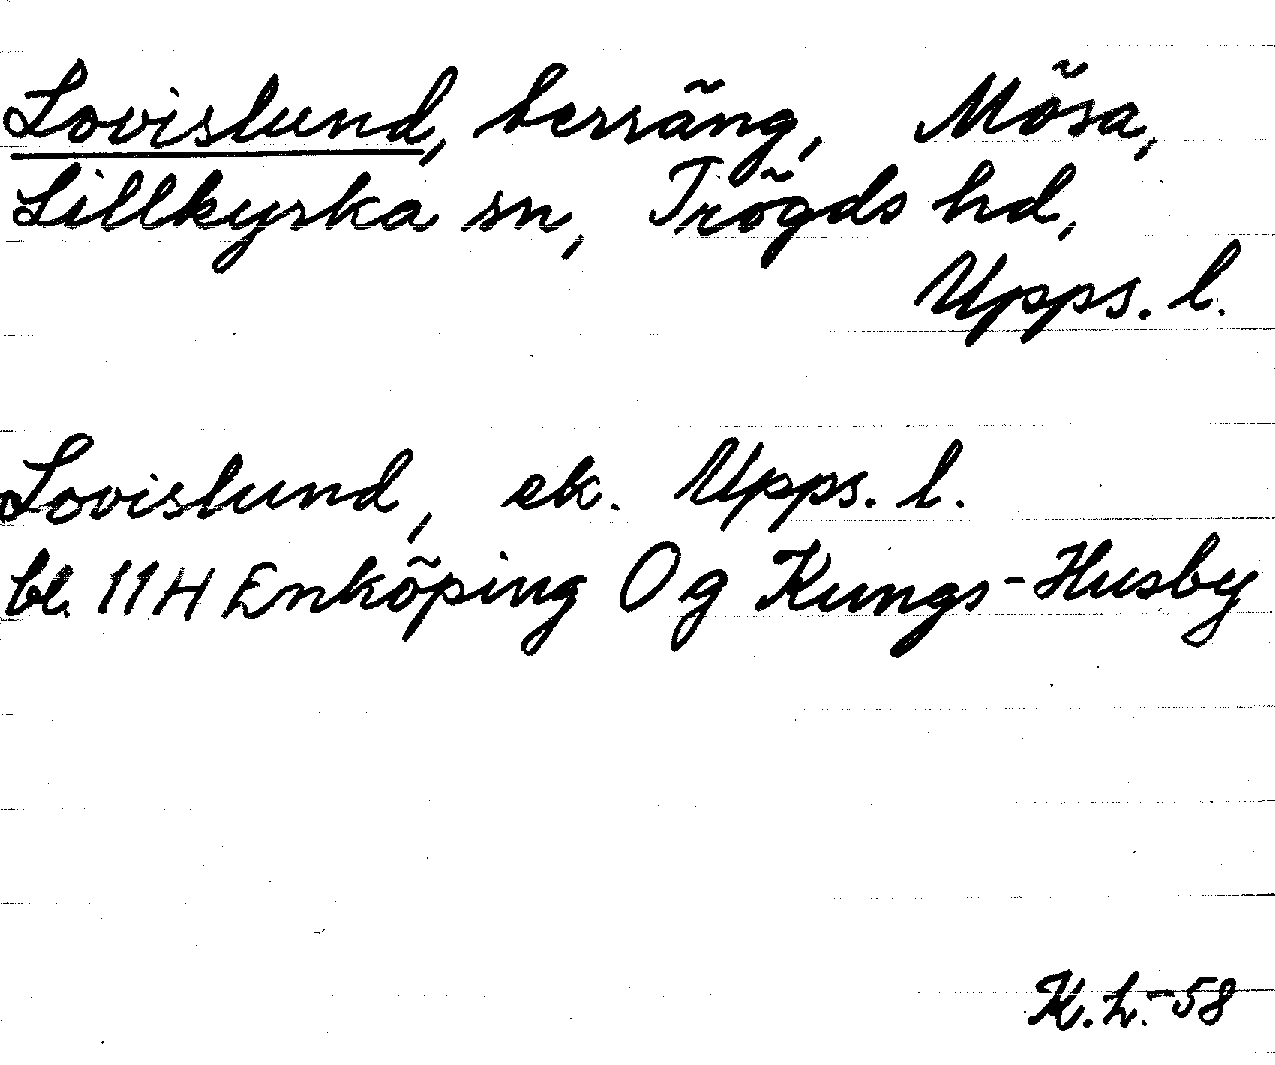 Lovislund, terräng, Mösa,
Lillkyrka sn, Trögds hd,
Upps. l.
Lovislund, ek. Upps. l.
bl. 11H Enköping Og Kungs-Husby
K.L.-58